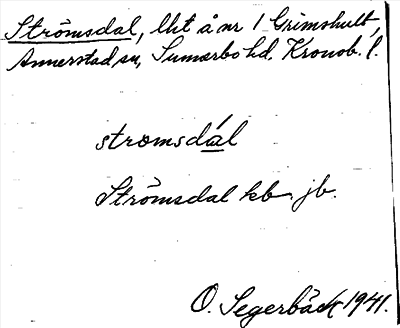 Strömsdal, lht å nr 1 Grimshult,
Annerstad sn, Sunnerbo hd. Kronob. l.
stromsdál
Strömsdal kb. jb.
O. Segerbäck 1941.